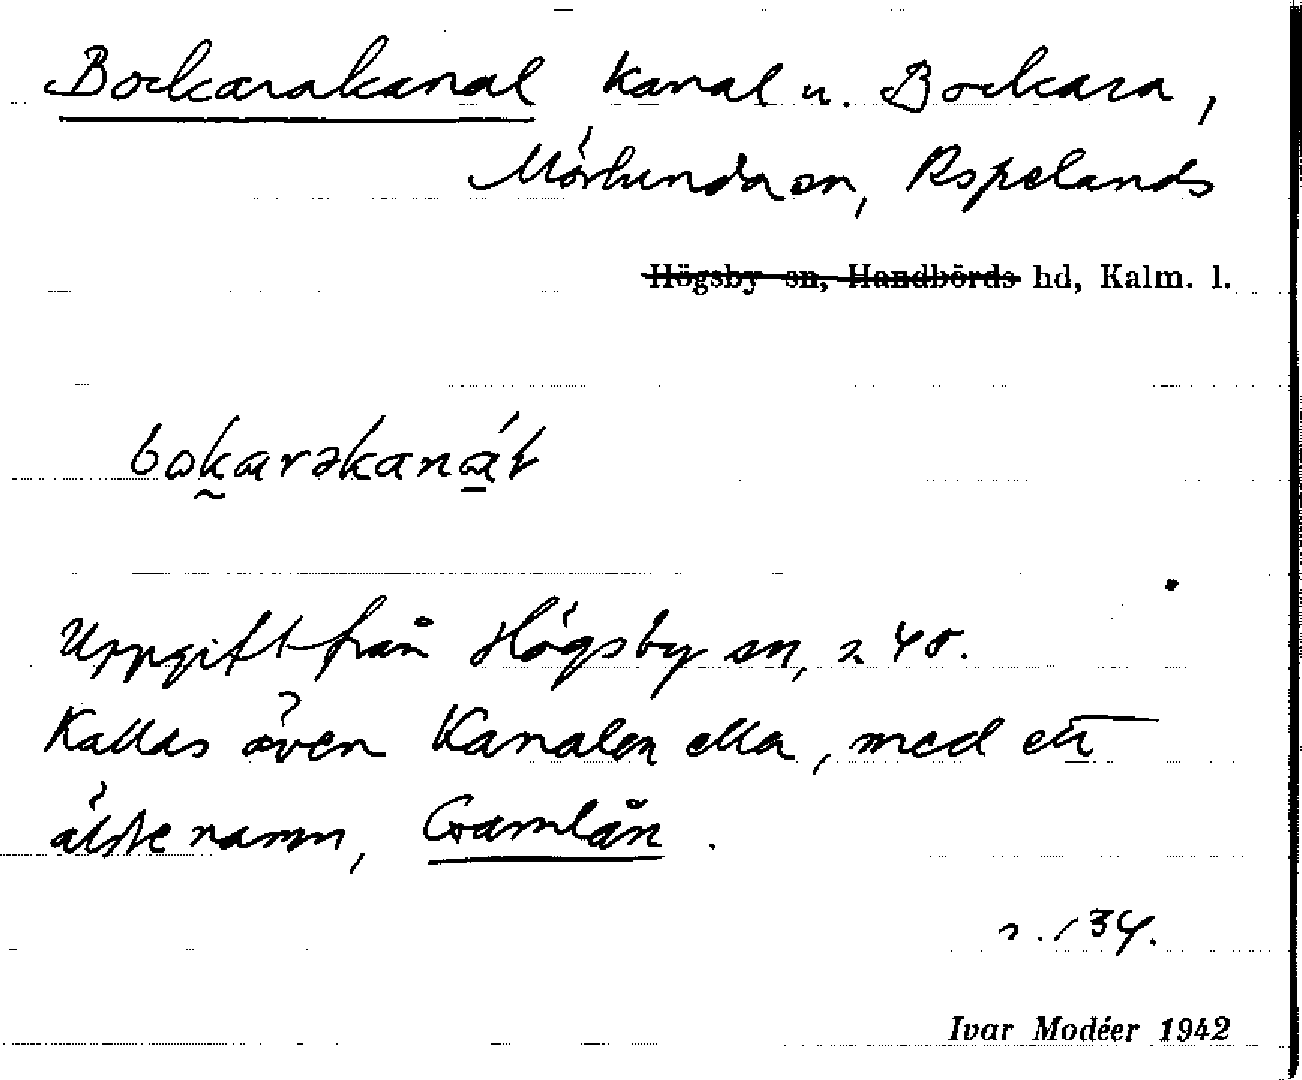 Bockarakanal kanal u. Bockara,
Mörlunda sn, Aspelands
Högsby sn, Handbörds hd, Kalm. l.
bokarəkanál
Uppgift från Högsby sn, s 40.
Kallas även Kanalen eller, med ett
äldre namn, Gamlån.
s. 134.
Ivar Modéer 1942